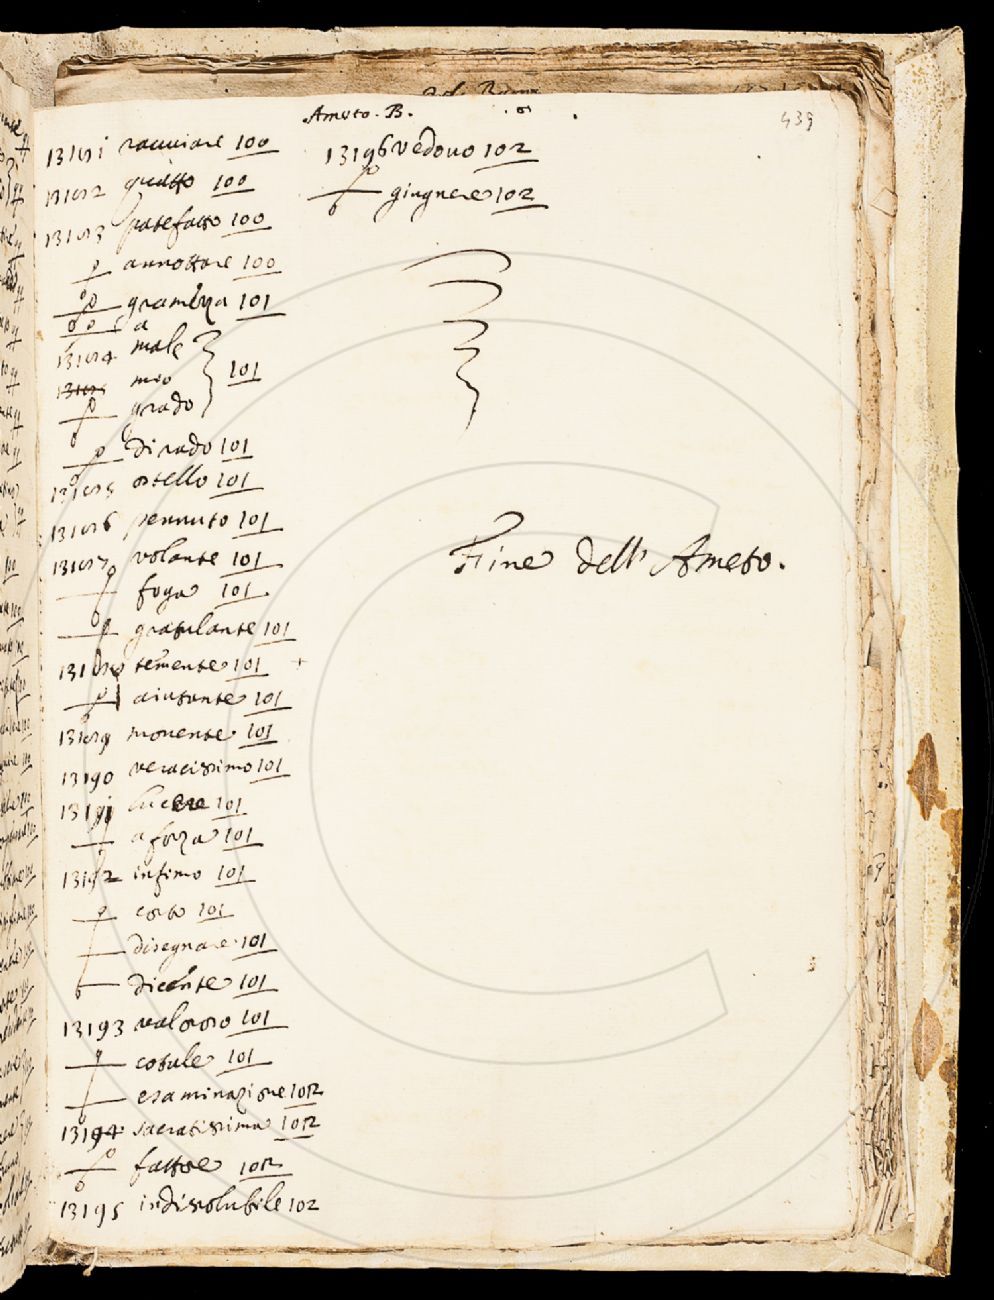 Ameto. B.
439
racuiare 100
quatto 100
patefatto 100
annottare 100
gramezza 101
a
male
meo 101
grado
di rado 101
ostello 101
pennuto 101
volante 101
foga 101
gratulante 101
temente 101 +
aiutante 101
movente 101
13190 veracissimo 101
lucere 101
a forza 101
13192 infimo 101
corto 101
disegnare 101
dicente 101
13193 valoroso 101
cotale 101
esaminazione 102
13194 sacratissima 102
fattore 102
13195 indissolubile 102
13196 vedouo 102
giugnere 102
Fine dell' Ameto.